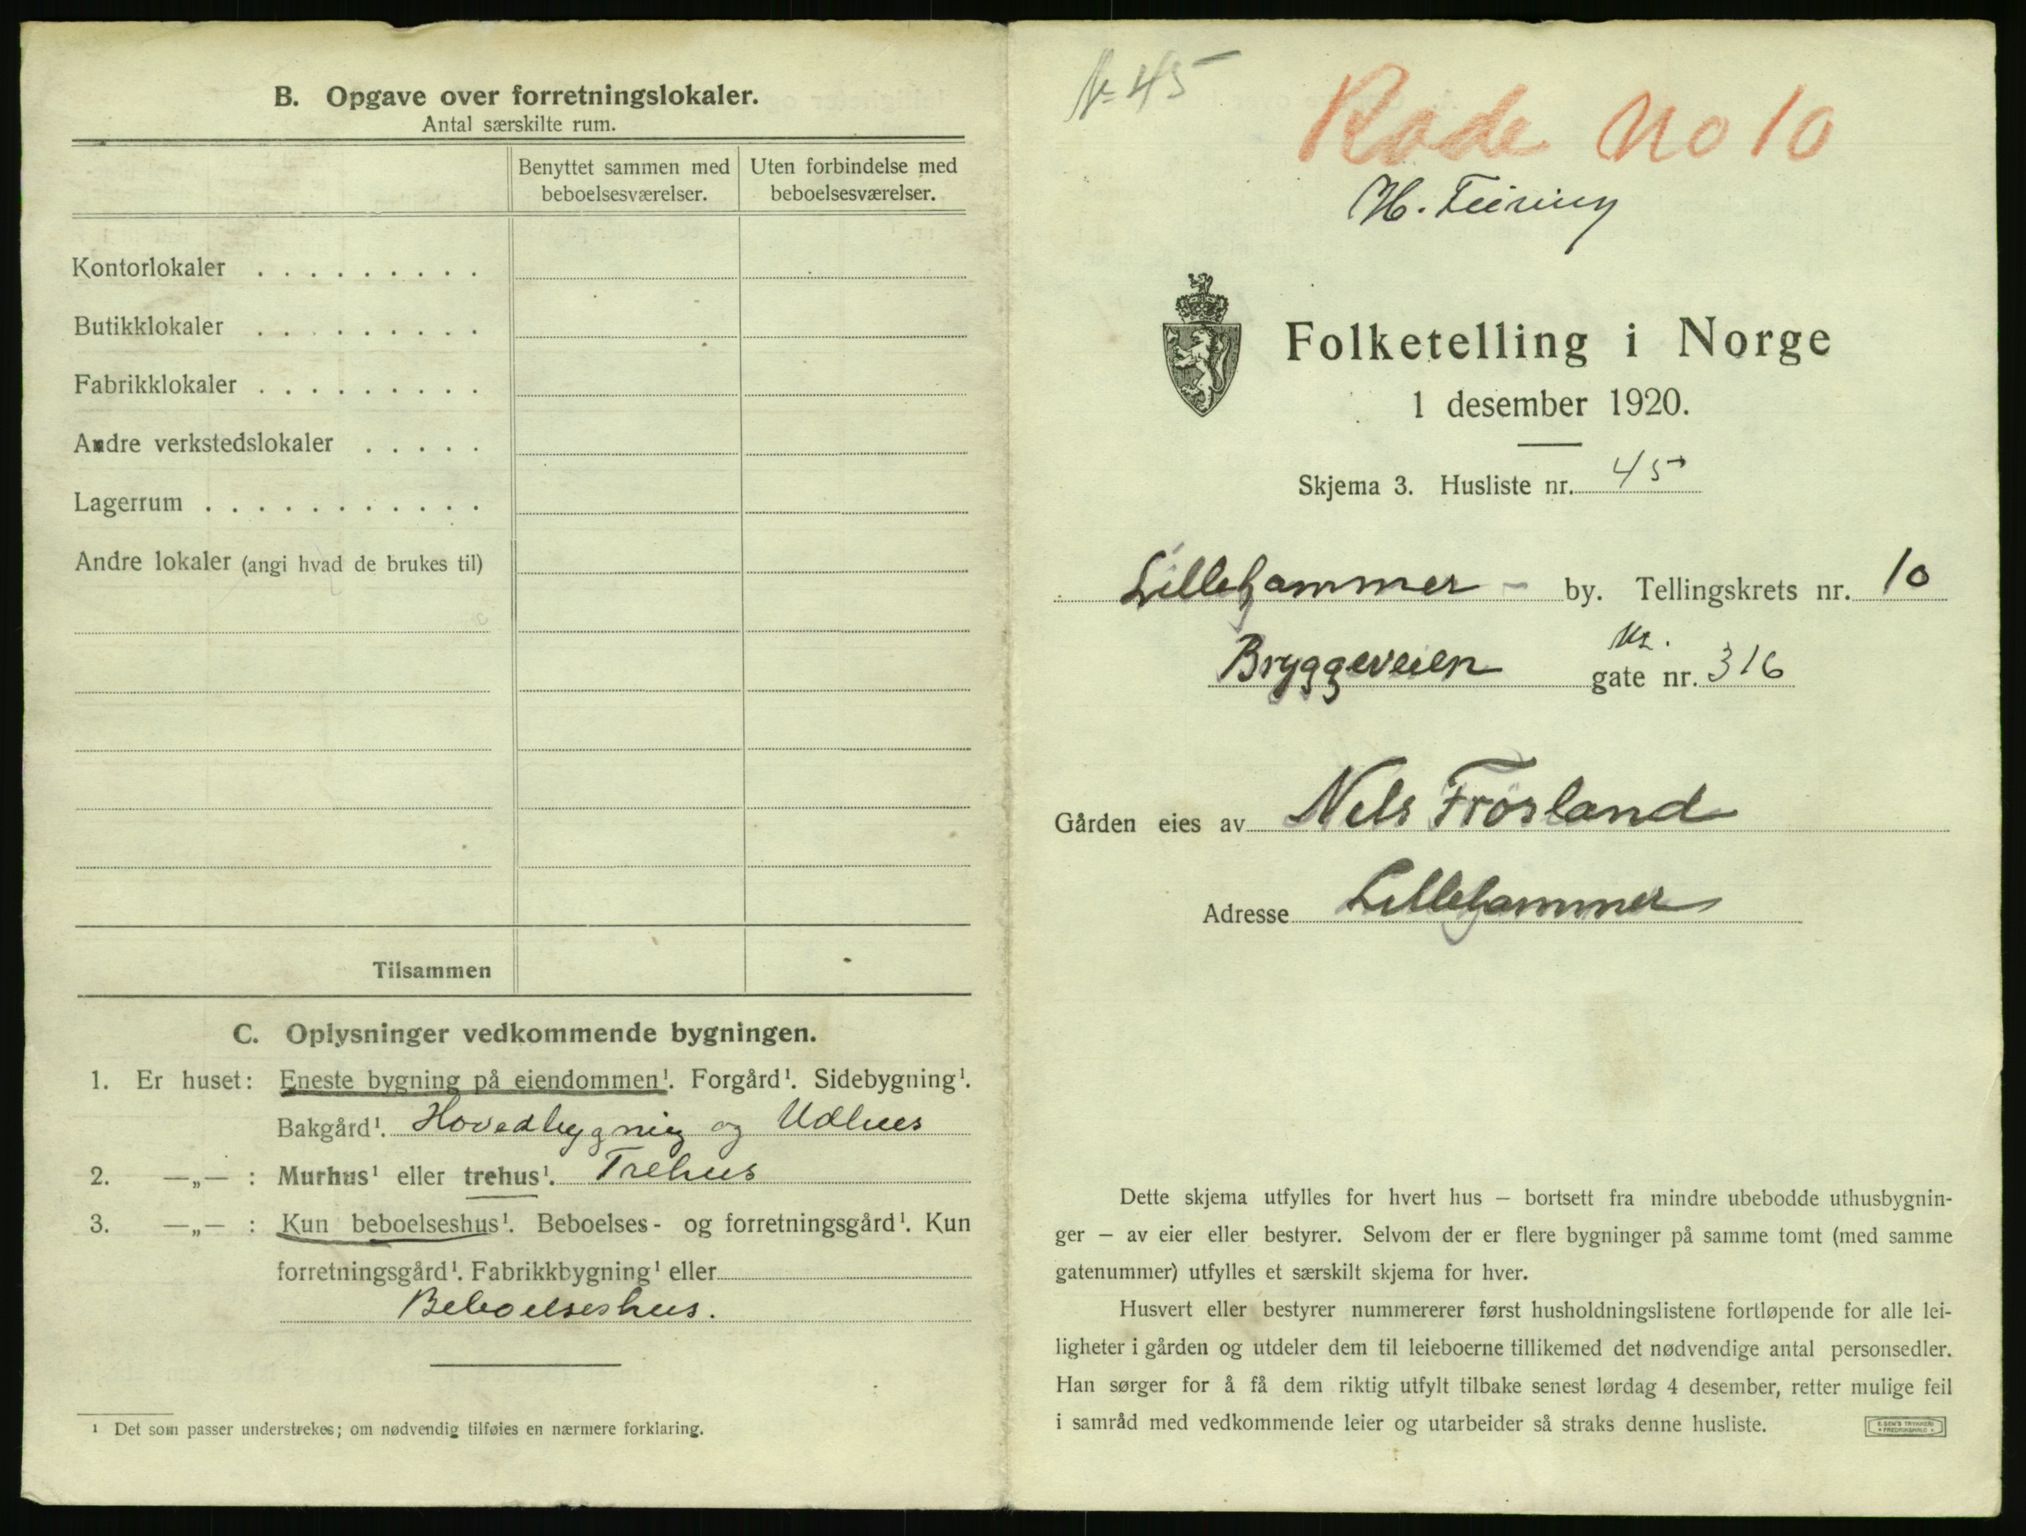 B. Opgave over forretningslokaler.
Antal særskilte rum.
Benyttet sammen med beboelsesværelser.
Uten forbindelse med beboelsesværelser.
Kontorlokaler . . . . . . . . .
Butikklokaler . . . . . . . . .
Fabrikklokaler . . . . . . . . .
Andre verkstedslokaler . . . . .
Lagerrum . . . . . . . . . . .
Andre lokaler (angi hvad de brukes til)
Tilsammen
C. Oplysninger vedkommende bygningen.
1. Er huset: Eneste bygning på eiendommen¹. Forgård¹. Sidebygning¹.
Bakgård¹. Hovedbygnig og Udhus
2. —„— : Murhus¹ eller trehus¹. Trehus
3. —„— : Kun beboelseshus¹. Beboelses- og forretningsgård¹. Kun
forretningsgård¹. Fabrikkbygning¹ eller
Beboelseshus.
¹ Det som passer understrekes; om nødvendig tilføies en nærmere forklaring.
№ 45
Rode No 10
H. Feiring
Folketelling i Norge
1 desember 1920.
Skjema 3. Husliste nr. 45
Lillehammer by. Tellingskrets nr. 10
Nr.
Bryggeveien gate nr. 316
Gården eies av Nels Frösland
Adresse Lillehammer
Dette skjema utfylles for hvert hus — bortsett fra mindre ubebodde uthusbygnin-
ger — av eier eller bestyrer. Selvom der er flere bygninger på samme tomt (med samme
gatenummer) utfylles et særskilt skjema for hver.
Husvert eller bestyrer nummererer først husholdningslistene fortløpende for alle lei-
ligheter i gården og utdeler dem til leieboerne tillikemed det nødvendige antal personsedler.
Han sørger for å få dem riktig utfylt tilbake senest lørdag 4 desember, retter mulige feil
i samråd med vedkommende leier og utarbeider så straks denne husliste.
E. SEM'S TRYKKERI
• FREDRIKSHALD •